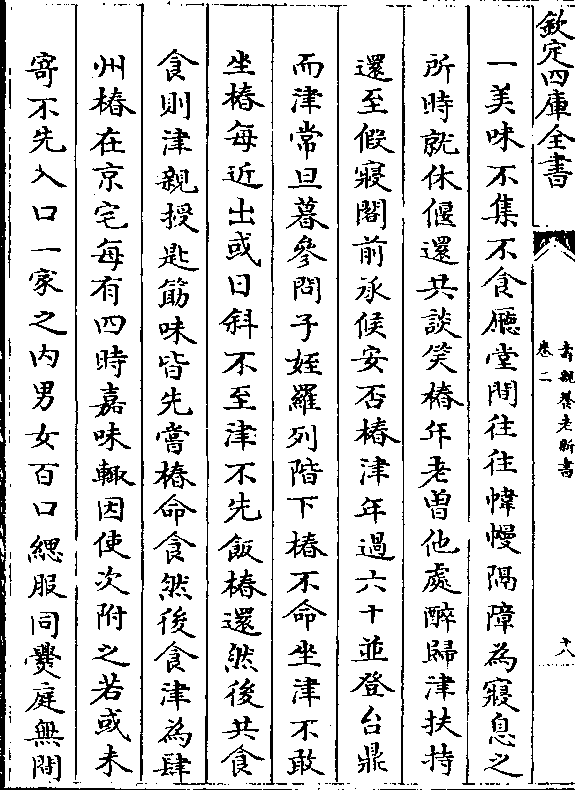 欽定四庫全書
壽親養老新書
卷二
十八
一美味不集不食廳堂間往往幃幔隔障為寢息之
所時就休偃還共談笑椿年老曽他處醉歸津扶持
還至假寢閤前承候安否椿津年過六十並登台鼎
而津常旦暮參問子姪羅列階下椿不命坐津不敢
坐椿每近出或日斜不至津不先飯椿還然後共食
食則津親授匙筯味皆先嘗椿命食然後食津為肆
州椿在京宅每有四時嘉味輙因使次附之若或未
寄不先入口一家之內男女百口緦服同爨庭無間